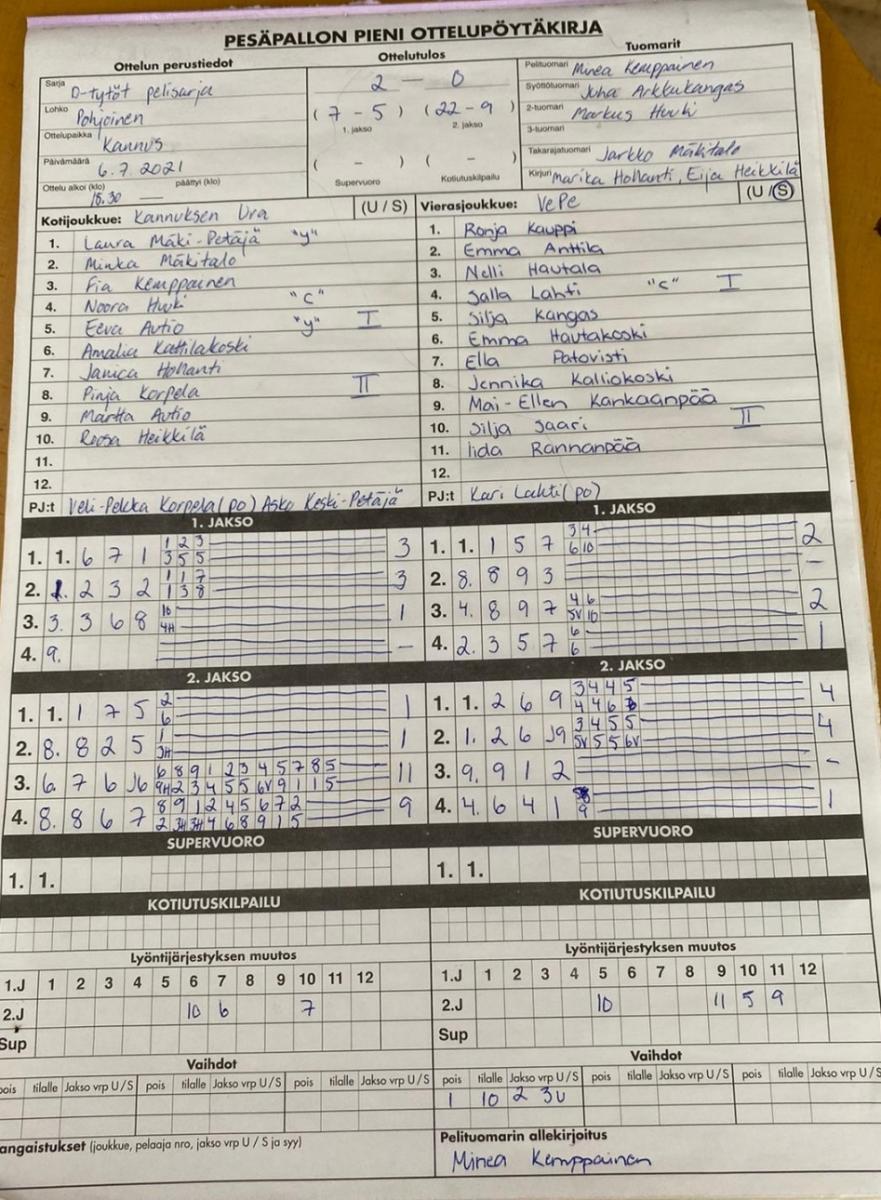 PESÄPALLON PIENI OTTELUPÖYTÄKIRJA
Ottelun perustiedot
Sarja D-tytöt pelisarja
Lohko Pohjoinen
Ottelupaikka Kannus
Päivämäärä 6.7.2021
Ottelu alkoi (klo) 18.30 päättyi (klo) —
Ottelutulos
2 — 0
( 7 - 5 ) ( 22 - 9 )
1. jakso 2. jakso
( - ) ( - )
Supervuoro Kotiutuskilpailu
Tuomarit
Pelituomari Minea Kemppainen
Syöttötuomari Juha Arkkukangas
2-tuomari Markus Huuki
3-tuomari
Takarajatuomari Jarkko Mäkitalo
Kirjuri Marika Hollanti, Eija Heikkilä
Kotijoukkue: Kannuksen Ura (U / S)
1. Laura Mäki-Petäjä "y"
2. Minka Mäkitalo
3. Fia Kemppainen
4. Noora Huuki "C"
5. Eeva Autio "y" I
6. Amalia Kattilakoski
7. Janica Hollanti
8. Pinja Korpela II
9. Martta Autio
10. Roosa Heikkilä
11.
12.
PJ:t Veli-Pekka Korpela (po) Asko Keski-Petäjä
Vierasjoukkue: VePe (U / S)
1. Ronja Kauppi
2. Emma Anttila
3. Nelli Hautala
4. Salla Lahti "C" I
5. Silja Kangas
6. Emma Hautakoski
7. Ella Patovisti
8. Jennika Kalliokoski
9. Mai-Ellen Kankaanpää
10. Silja Saari II
11. Iida Rannanpää
12.
PJ:t Kari Lahti (po)
1. JAKSO
1. 1. 6 7 1 1 2 3 3
3 5 5
2. 1. 2 3 2 1 1 7 3
1 3 8
3. 3. 3 6 8 10 1
4H
4. 9. —
2. JAKSO
1. 1. 1 7 5 2 1
6
2. 8. 8 2 5 1 1
3H
3. 6. 7 6 J6 6 8 9 1 2 3 4 5 7 8 5 11
9H 2 3 4 5 5 6V 9 1 1 5
4. 8. 8 6 7 8 9 1 2 4 5 6 7 2 9
2 3H 3H 4 6 8 9 1 5
SUPERVUORO
1. 1.
KOTIUTUSKILPAILU
Lyöntijärjestyksen muutos
1.J 1 2 3 4 5 6 7 8 9 10 11 12
2.J 10 6 7
Sup
Vaihdot
pois tilalle Jakso vrp U / S pois tilalle Jakso vrp U / S pois tilalle Jakso vrp U / S
angaistukset (joukkue, pelaaja nro, jakso vrp U / S ja syy)
1. JAKSO
1. 1. 1 5 7 3 4 2
6 10
2. 8. 8 9 3 —
3. 4. 8 9 7 4 6 2
5V 10
4. 2. 3 5 7 6 1
6
2. JAKSO
1. 1. 2 6 9 3 4 4 5 4
4 4 6
2. 1. 2 6 J9 3 4 5 5 4
5V 5 5 6V
3. 9. 9 1 2 -
4. 4. 6 4 1 1
9
SUPERVUORO
1. 1.
KOTIUTUSKILPAILU
Lyöntijärjestyksen muutos
1.J 1 2 3 4 5 6 7 8 9 10 11 12
2.J 10 11 5 9
Sup
Vaihdot
pois tilalle Jakso vrp U / S pois tilalle Jakso vrp U / S pois tilalle Jakso vrp U / S
1 10 2 3U
Pelituomarin allekirjoitus
Minea Kemppainen